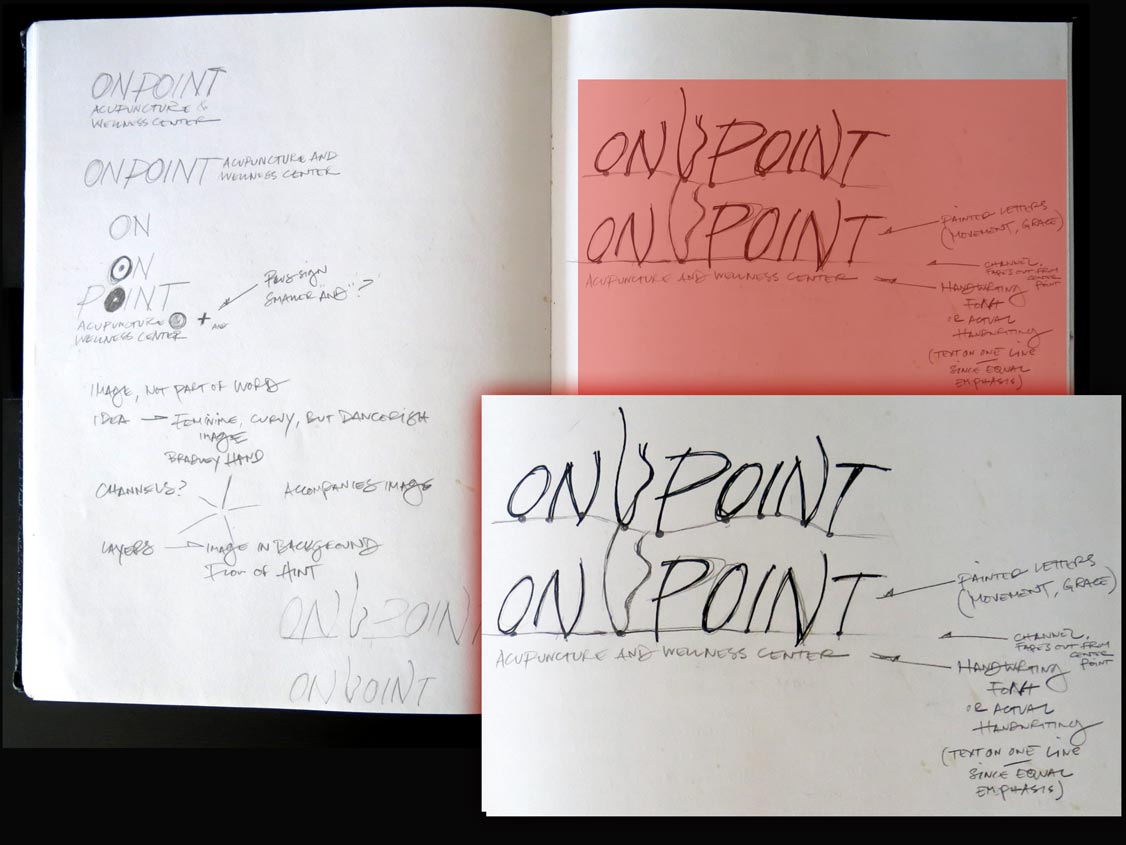 ONPOINT
ACUPUNCTURE &
WELLNESS CENTER
ONPOINT ACUPUNCTURE AND
WELLNESS CENTER
ON
ON
POINT
ACUPUNCTURE + AND
WELLNESS CENTER
PLUS SIGN
SMALLER "AND"?
IMAGE, NOT PART OF WORD
IDEA → FEMININE, CURVY, BUT DANCERISH
IMAGE
BRADLEY HAND
CHANNELS?
ACCOMPANIES IMAGE
LAYERS → IMAGE IN BACKGROUND
FLOW OF HINT
ON POINT
ON POINT
ON POINT
ON POINT
ACUPUNCTURE AND WELLNESS CENTER
PAINTED LETTERS
(MOVEMENT, GRACE)
CHANNEL,
FADES OUT FROM
CENTER
POINT
HANDWRITING
FONT
OR ACTUAL
HANDWRITING
(TEXT ON ONE LINE
SINCE EQUAL
EMPHASIS)
ON POINT
ON POINT
ACUPUNCTURE AND WELLNESS CENTER
PAINTED LETTERS
(MOVEMENT, GRACE)
CHANNEL,
FADES OUT FROM
CENTER
POINT
HANDWRITING
FONT
OR ACTUAL
HANDWRITING
(TEXT ON ONE LINE
SINCE EQUAL
EMPHASIS)